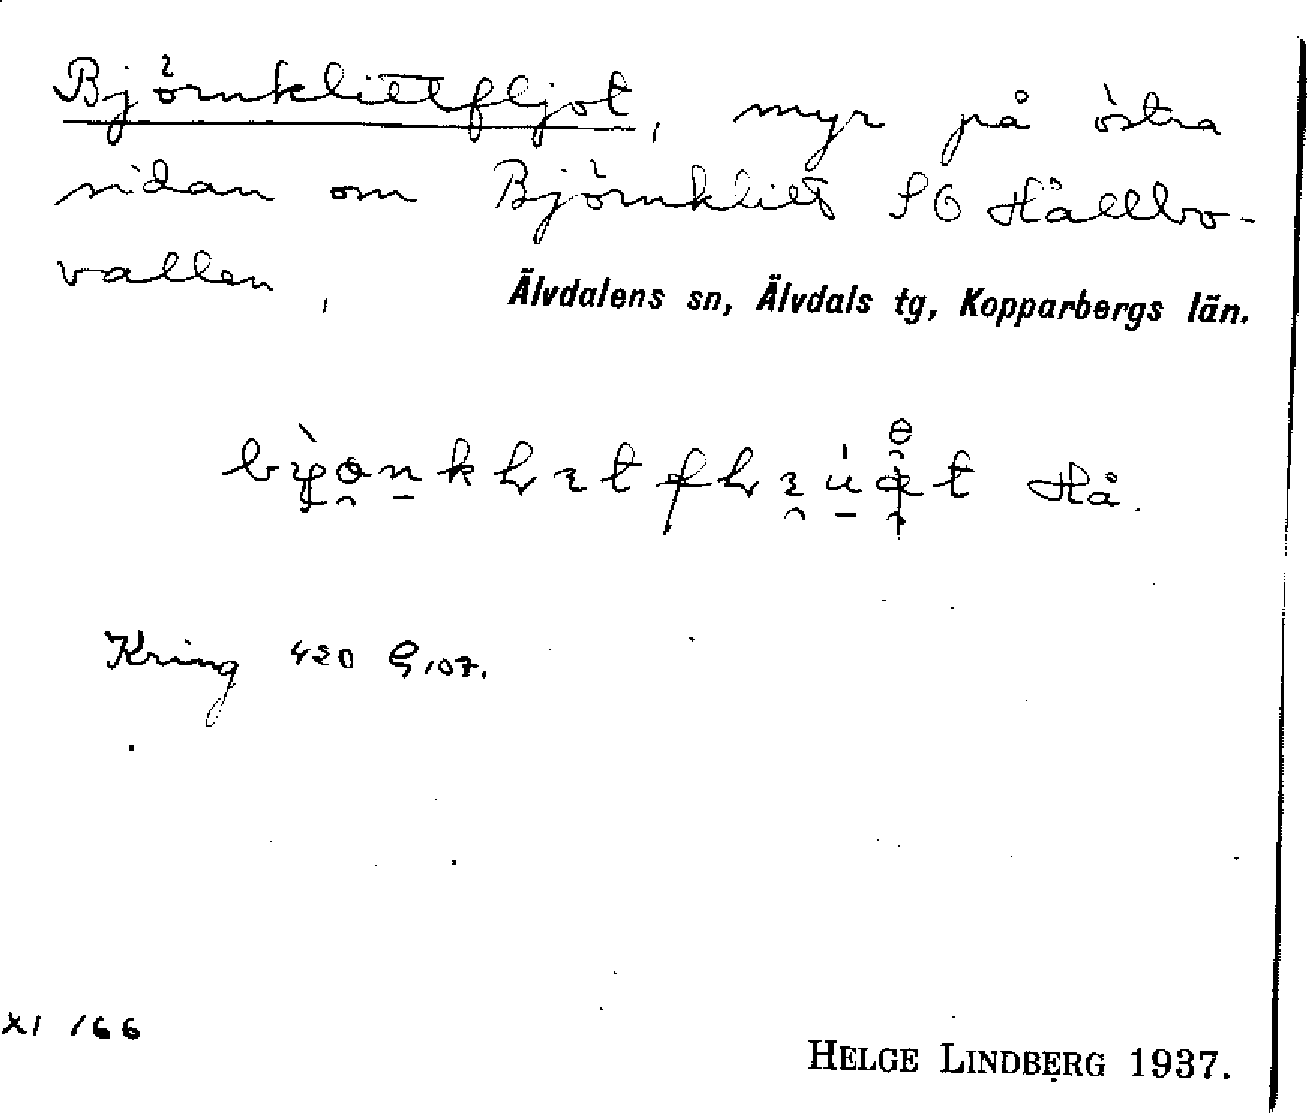 Björnklittfljot, myr på östra
sidan om Björnklitt SO Hållbo-
vallen,
Älvdalens sn, Älvdals tg, Kopparbergs län.
Hå.
Kring 420 G 107.
XI 166
HELGE LINDBERG 1937.